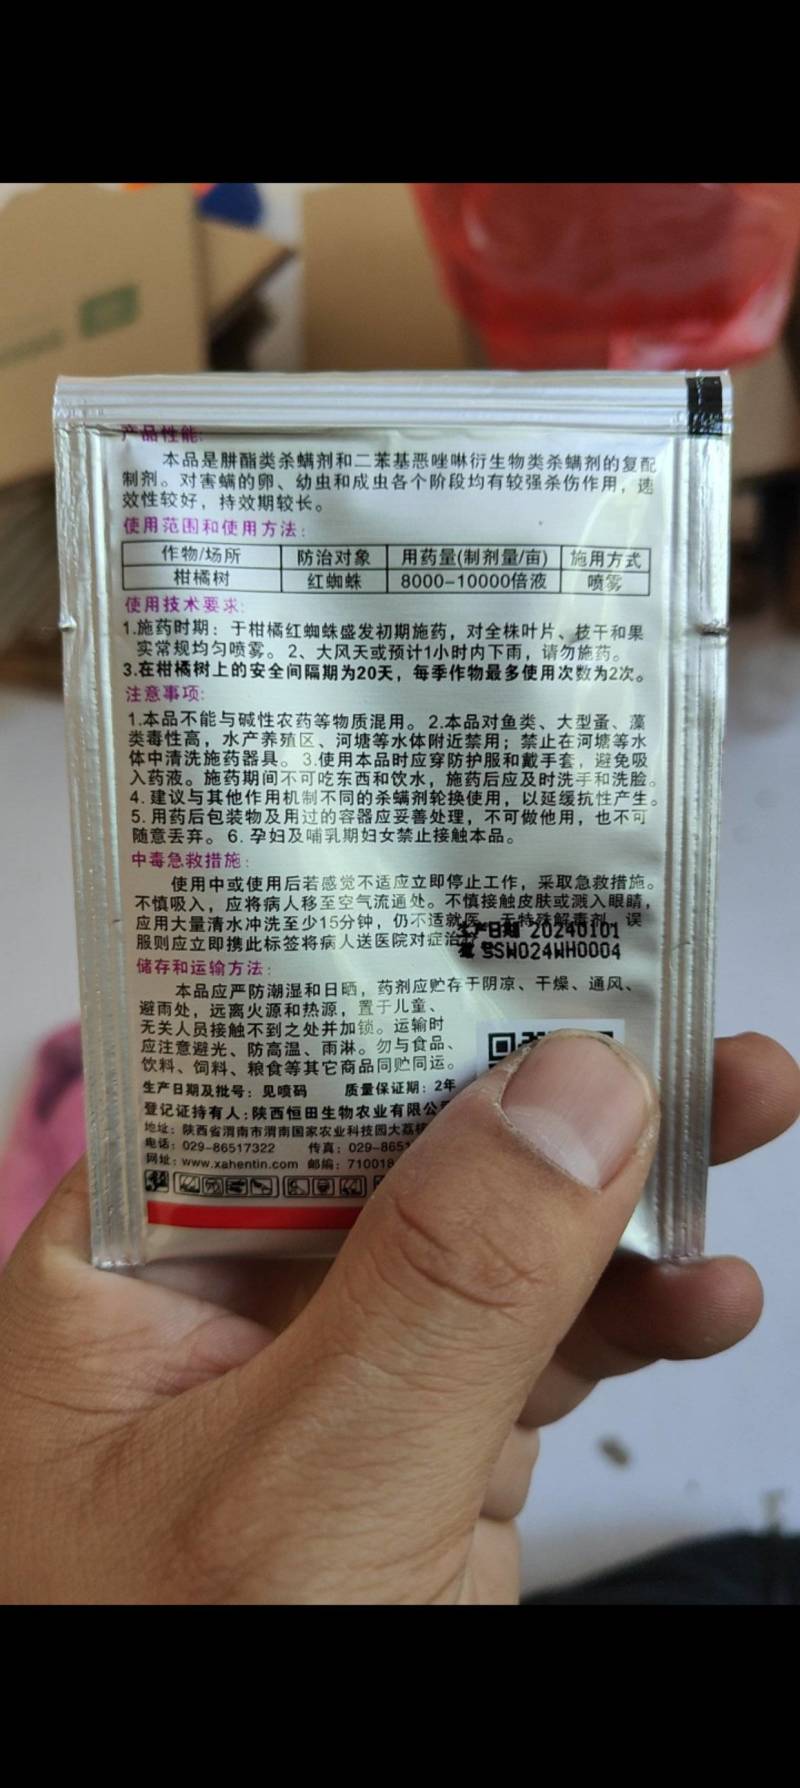 产品性能:
本品是肼酯类杀螨剂和二苯基恶唑啉衍生物类杀螨剂的复配
制剂。对害螨的卵、幼虫和成虫各个阶段均有较强杀伤作用，速
效性较好，持效期较长。
使用范围和使用方法:
作物/场所 防治对象 用药量(制剂量/亩) 施用方式
柑橘树 红蜘蛛 8000-10000倍液 喷雾
使用技术要求:
1.施药时期：于柑橘红蜘蛛盛发初期施药，对全株叶片、枝干和果
实常规均匀喷雾。2、大风天或预计1小时内下雨，请勿施药。
3.在柑橘树上的安全间隔期为20天，每季作物最多使用次数为2次。
注意事项:
1.本品不能与碱性农药等物质混用。2.本品对鱼类、大型蚤、藻
类毒性高，水产养殖区、河塘等水体附近禁用；禁止在河塘等水
体中清洗施药器具。3.使用本品时应穿防护服和戴手套，避免吸
入药液。施药期间不可吃东西和饮水，施药后应及时洗手和洗脸。
4.建议与其他作用机制不同的杀螨剂轮换使用，以延缓抗性产生。
5.用药后包装物及用过的容器应妥善处理，不可做他用，也不可
随意丢弃。6.孕妇及哺乳期妇女禁止接触本品。
中毒急救措施:
使用中或使用后若感觉不适应立即停止工作，采取急救措施。
不慎吸入，应将病人移至空气流通处。不慎接触皮肤或溅入眼睛，
应用大量清水冲洗至少15分钟，仍不适就医。无特殊解毒剂，误
服则应立即携此标签将病人送医院对症治
生产日期 20240101
SSW024WH0004
储存和运输方法:
本品应严防潮湿和日晒，药剂应贮存于阴凉、干燥、通风、
避雨处，远离火源和热源，置于儿童、
无关人员接触不到之处并加锁。运输时
应注意避光、防高温、雨淋。勿与食品、
饮料、饲料、粮食等其它商品同贮同运。
生产日期及批号：见喷码 质量保证期：2年
登记证持有人:陕西恒田生物农业有限公
地址：陕西省渭南市渭南国家农业科技园大荔
电话：029-86517322 传真：029-865
网址：www.xahentin.com 邮编：710018